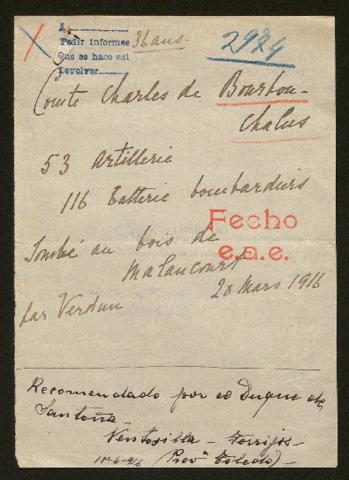 A
Pedir informes 36 ans.
Que se haco así
Devolver
2984
Comte Charles de Bourbon-
Chalus
53 Artillerie
116 Batterie bombardiers
Fecho
e.a.e.
Tombé au bois de
Malancourt
28 Mars 1916
par Verdun
Recomendado por el Duque de
Santoña
Ventosilla - Torrijos -
(Provª Toledo) -